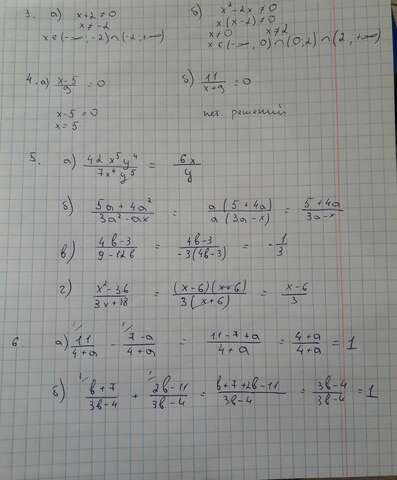 3. а) x+2≠0 б) x²-2x≠0
x≠-2 x(x-2)≠0
x∈(-∞,-2)∩(-2,+∞) x≠0 x≠2
x∈(-∞,0)∩(0,2)∩(2,+∞)
4. а) (x-5)/9 = 0 б) 11/(x+9) = 0
x-5=0 нет решений
x=5
5. а) 42x⁵y⁴/7x⁴y⁵ = 6x/y
б) (5a+4a²)/(3a²-ax) = a(5+4a)/a(3a-x) = (5+4a)/(3a-x)
в) (4b-3)/(9-12b) = (4b-3)/-3(4b-3) = -1/3
г) (x²-36)/(3x+18) = (x-6)(x+6)/3(x+6) = (x-6)/3
6. а) 11/(4+a) - (7-a)/(4+a) = (11-7+a)/(4+a) = (4+a)/(4+a) = 1
б) (b+7)/(3b-4) + (2b-11)/(3b-4) = (b+7+2b-11)/(3b-4) = (3b-4)/(3b-4) = 1